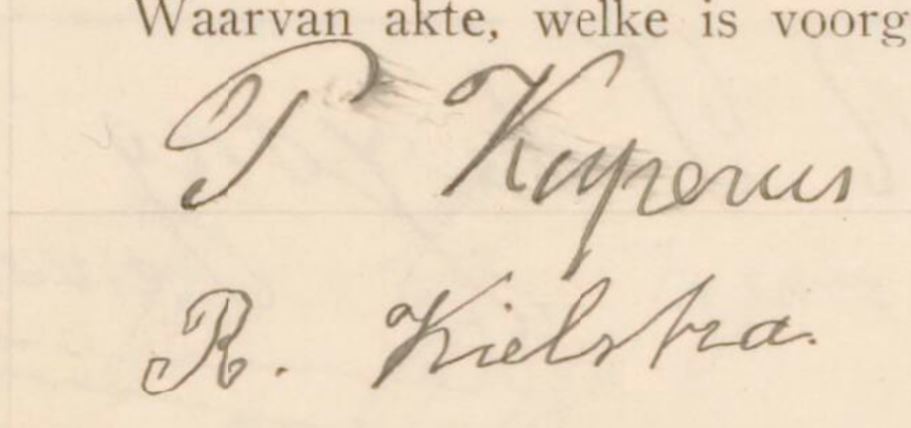 Waarvan akte, welke is voorg
P Kuperus
R. Kielstra.